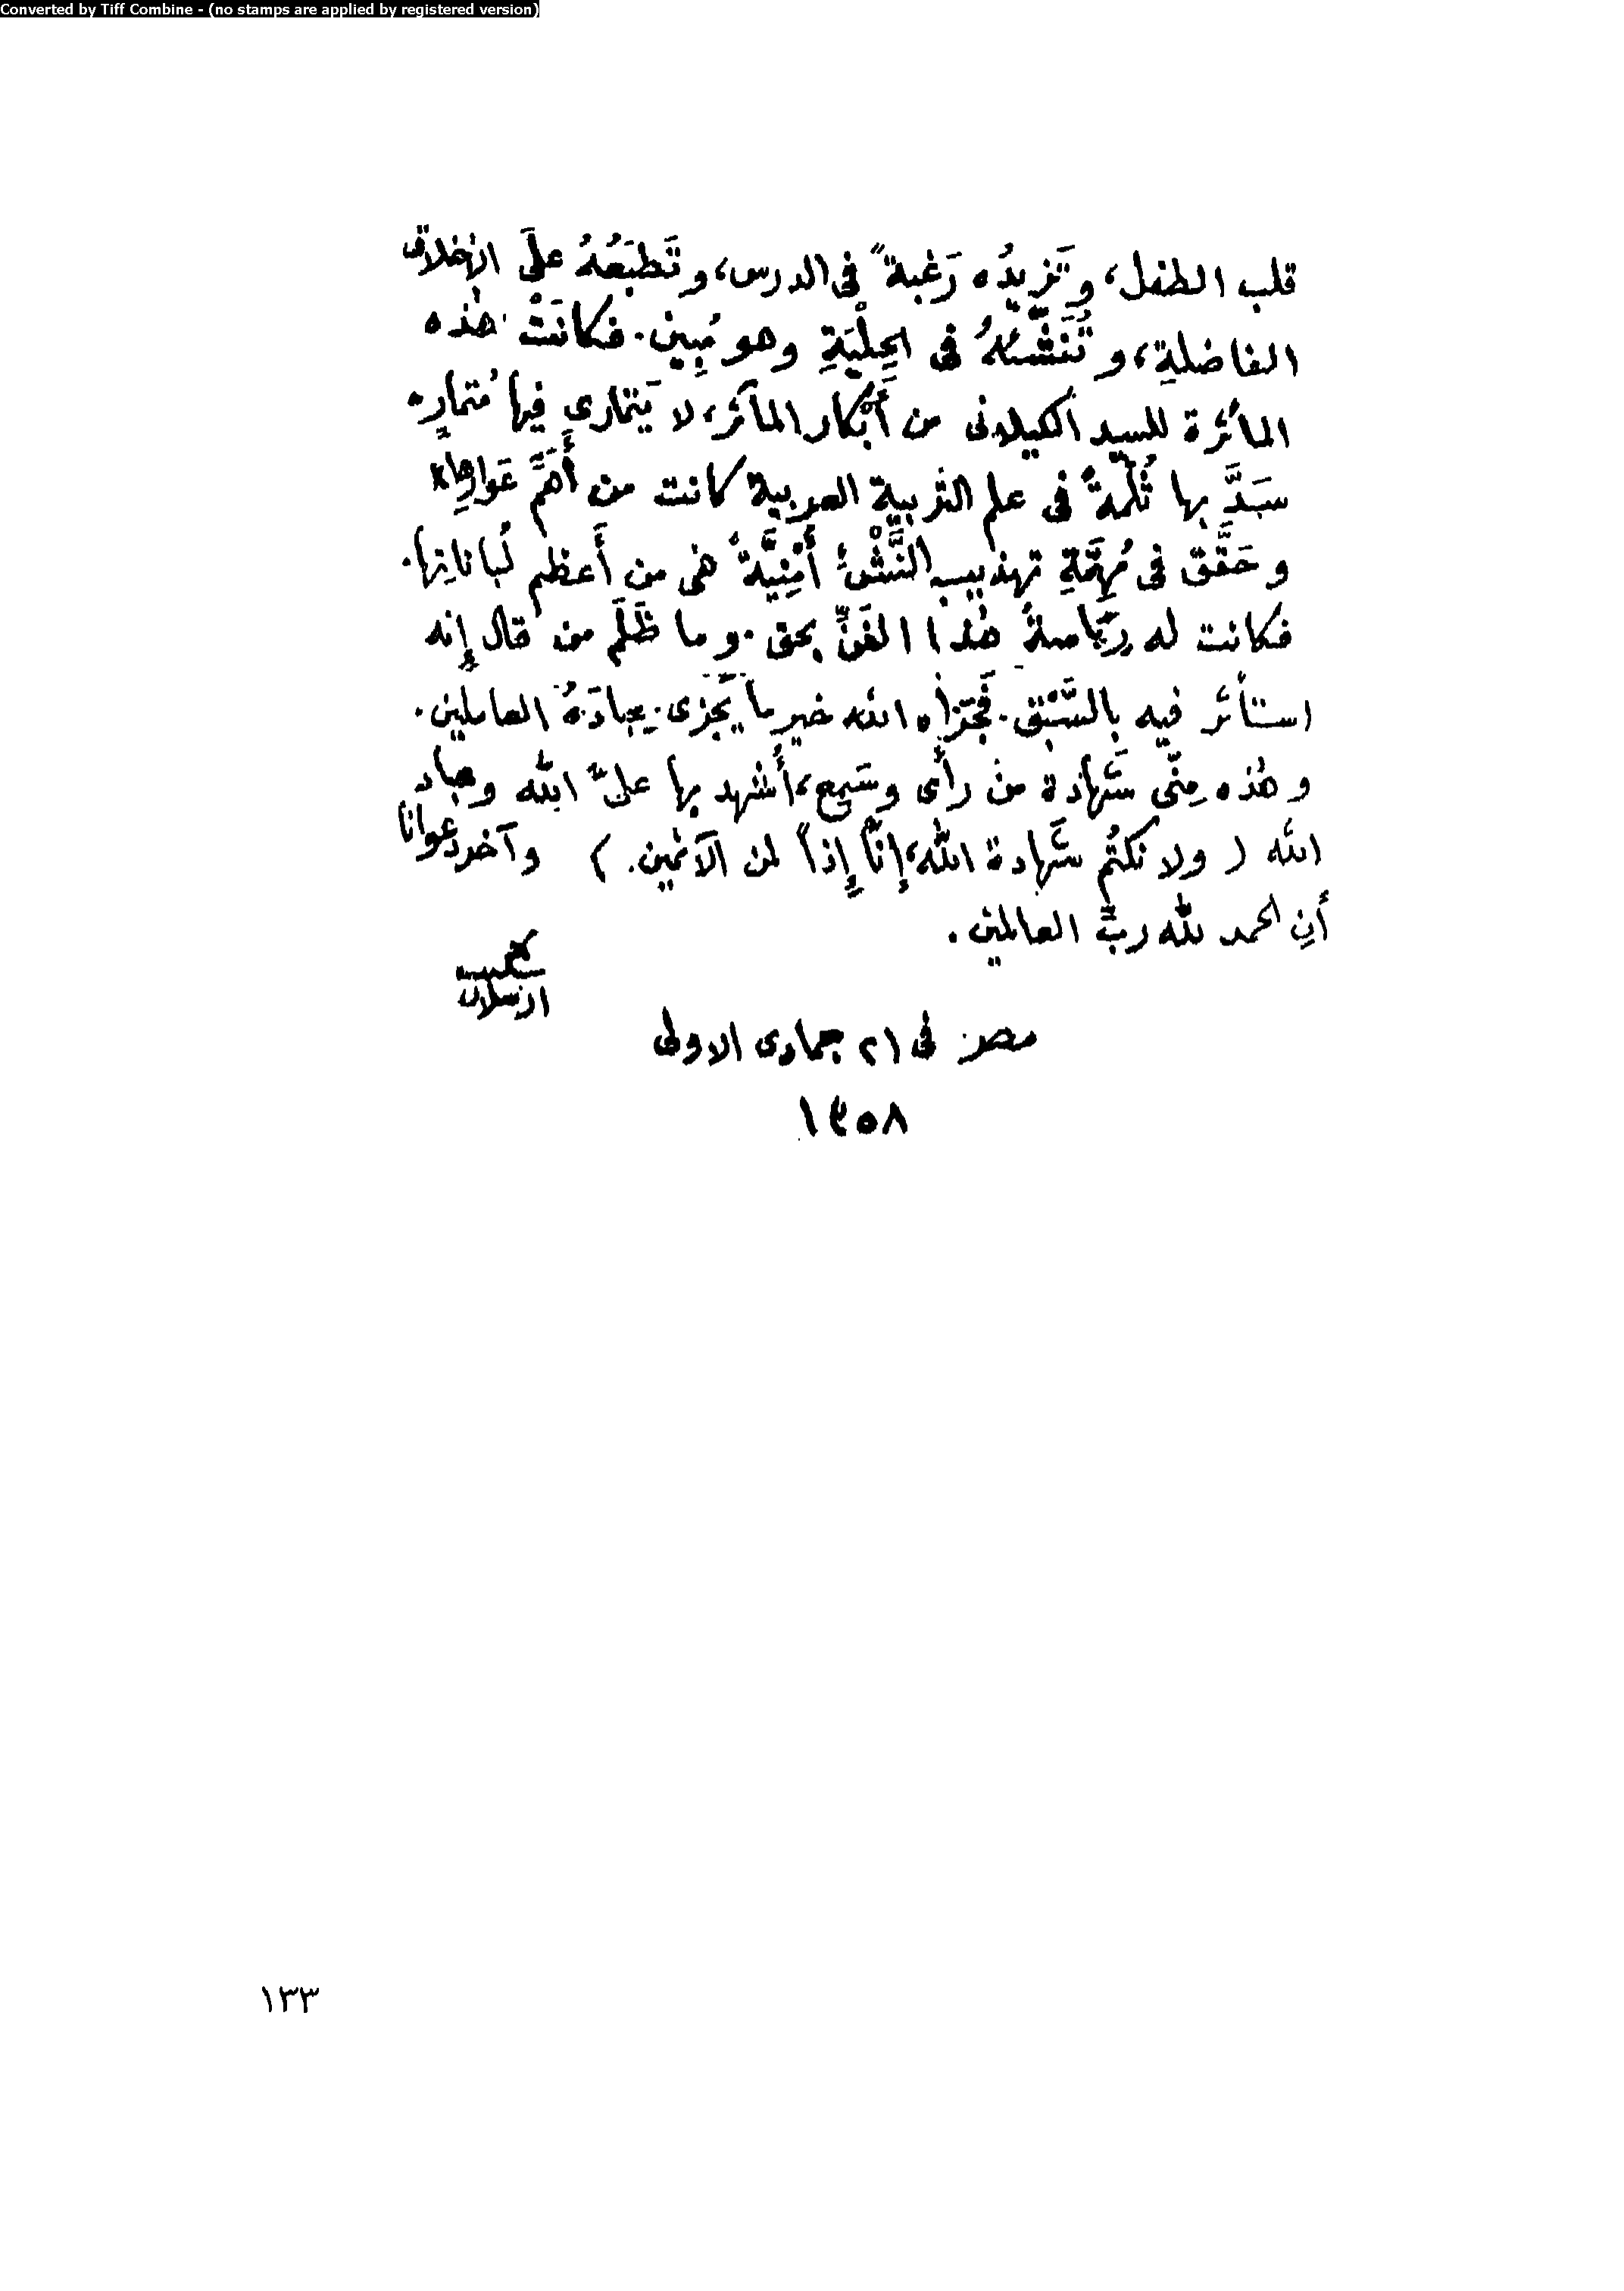 Converted by Tiff Combine - (no stamps are applied by registered version)
قلب الطفل، وتَزيدُه رَغبةً في الدرس، وتَطبَعُهُ علَى الأخلاق
الفاضلةِ، وتُنَشِّئُهُ فى الحِلْيَةِ وهو مُبِين. فكانَتْ هٰذه
المأثرة للسيد الكيلانى من أَبْكار المآثر، لا يَتمارى فيها مُتمارٍ.
سَدَّ بها ثُلْمةً فى علم التربية العربية كانت من أَهَمِّ عَوارِها،
وحَقَّق فى مُهِمَّةِ تهذيب النَّشْءِ أُمْنِيَّةً هى من أَعظم لُباناتِها.
فكانت له رِيَاسةُ هٰذا الفَنِّ بحق. وما ظَلَمَ من قال إِنه
استأثر فيه بالسَّبْق. فجَزاه الله خير ما يَجْزى بِه عِبادَهُ العاملين.
وهٰذه مِنّى شَهادة مَنْ رأَى وسَمِع، أُشهد بها علىَّ الله وعباد
الله ( ولا نكتُم شَهادة الله، إِنّا إِذاً لمن الآثمين. ) وآخر دعوانا
أَنِ الحمد لله ربِّ العالمين.
شكيب
ارسلان
مصر فى ٢١ جمادى الاولى
١٣٥٨
١٣٣